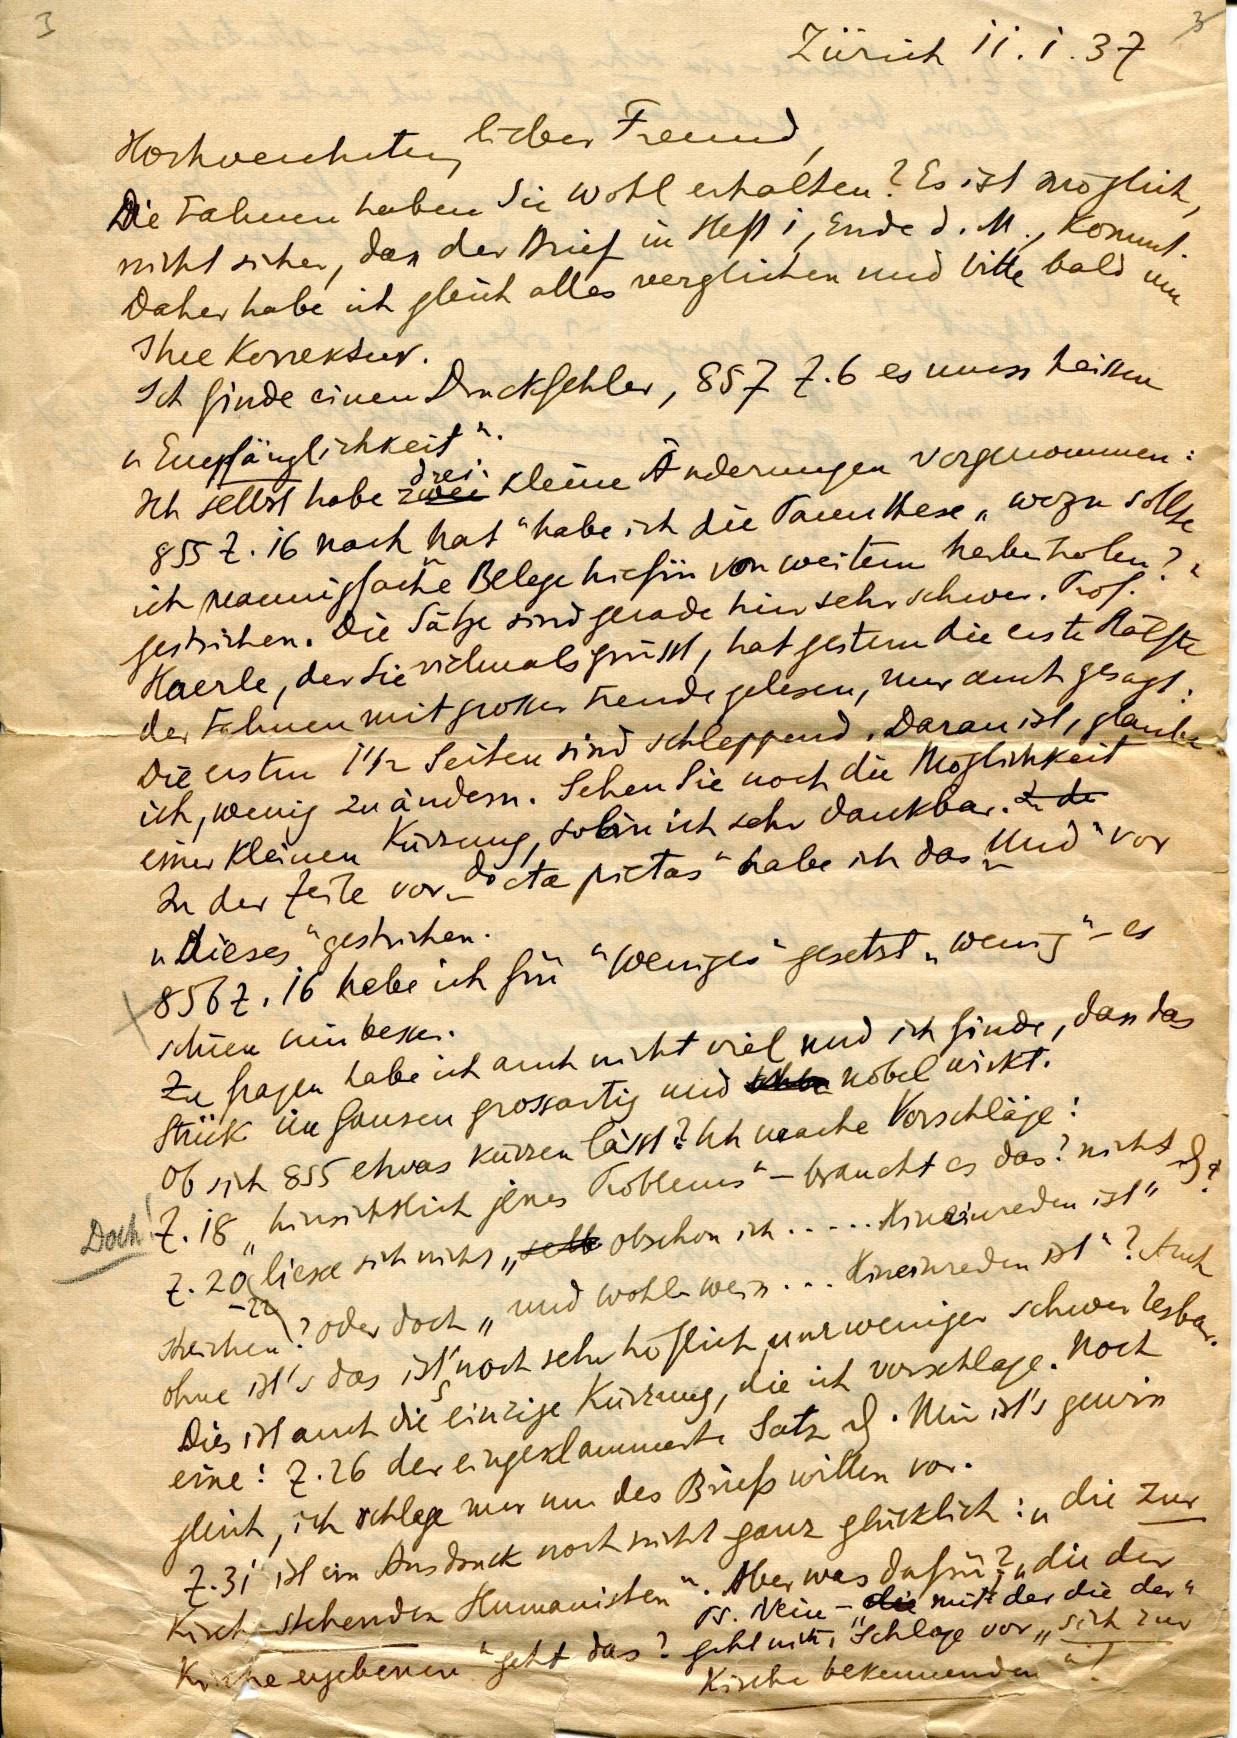 3
3
Zürich 11.1.37
Hochverehrter, lieber Freund,
Die Fahnen haben Sie wohl erhalten? Es ist möglich,
nicht sicher, dass der Brief in Heft 1, Ende d. M., kommt.
Daher habe ich gleich alles verglichen und bitte bald um
Ihre Korrektur.
Ich finde einen Druckfehler, 857 Z.6 es muss heissen
„Empfänglichkeit“.
Ich selbst habe zwei drei kleine Änderungen vorgenommen:
855 Z.16 nach hat“ habe ich die Parenthese „wozu sollte
ich mannigfache Belege hiefür von weitem herbeiholen?“
gestrichen. Die Sätze sind gerade hier sehr schwer. Prof.
Haerle, der Sie vielmals grüsst, hat gestern die erste Hälfte
der Fahnen mit grosser Freude gelesen, nur auch gesagt:
Die ersten 1 1/2 Seiten sind schleppend. Daran ist, glaube
ich, wenig zu ändern. Sehen Sie noch die Möglichkeit
einer kleinen Kürzung, so bin ich sehr dankbar. In de
In der Zeile vor „docta pietas“ habe ich das „Und“ vor
„Dieses“ gestrichen.
856 Z.16 habe ich für “weniges“ gesetzt „wenig“ – es
schien mir besser.
Zu fragen habe ich auch nicht viel und ich finde, dass das
Stück im Ganzen grossartig und nobel wirkt.
Ob sich 855 etwas kürzen lässt? Ich mache Vorschläge:
Doch! Z.18 „hinsichtlich jenes Problems“ – braucht es das? nicht
Z.20 –22 liesse sich nicht „selb obschon ich ..... Hineinreden ist“
streichen? oder doch „und wohl weiss ... Hineinreden ist“? Auch
ohne ist's das ist noch sehr höflich, nur weniger schwer lesbar.
Dies ist auch die einzige Kürzung, die ich vorschlage. Noch
eine: Z.26 der eingeklammerte Satz. Mir ist's gewiss
gleich, ich schlage nur um des Briefs willen vor.
Z.31 ist ein Ausdruck noch nicht ganz glücklich: „die zur
Kirche stehenden Humanisten“. Aber was dafür? „die der
PS. Nein – „die mit der die der“
Kirche ergebenen“ geht das? geht nicht, schlage vor „sich zur
Kirche bekennenden“!